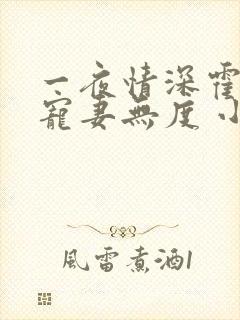 一夜情深霍
寵妻無度小
風雷煮酒1